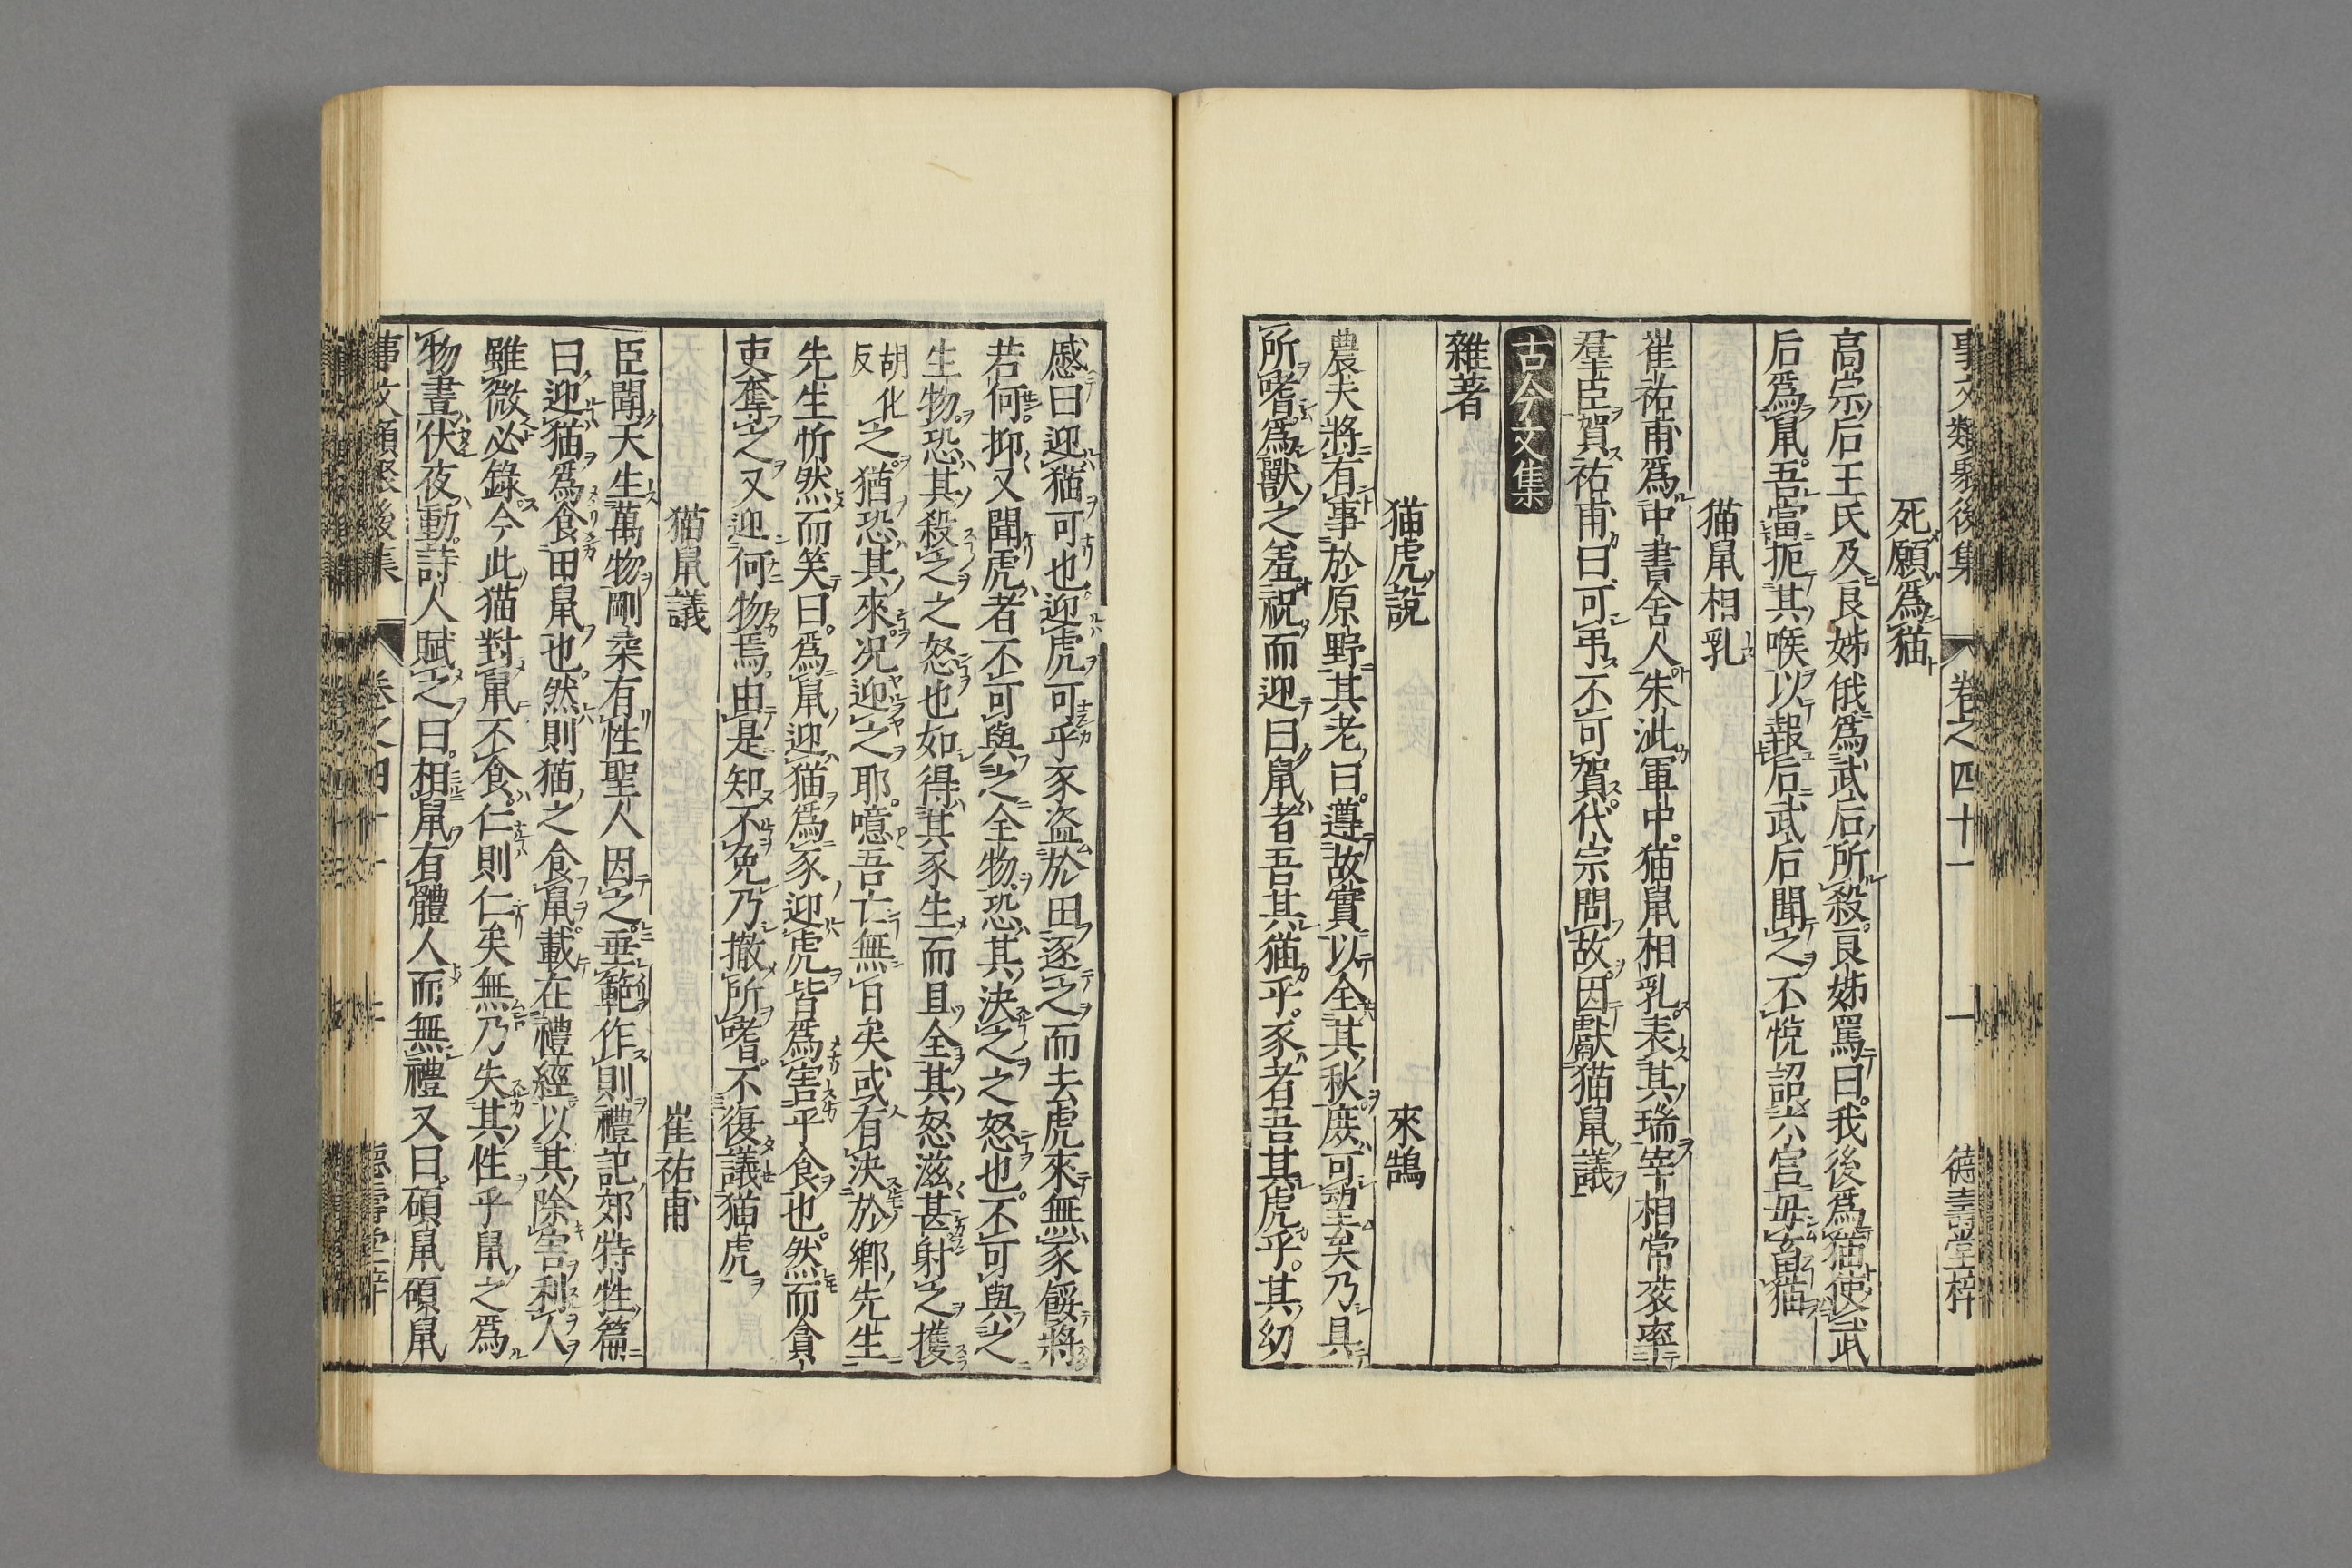 事文類聚後集 卷之四十一 十一 德壽堂梓
死願爲猫
高宗后王氏及良姊俄爲武后所殺良姊罵曰我後爲猫使武
后爲鼠吾當扼其喉以報后武后聞之不悅詔六宮毋畜猫
猫鼠相乳
崔祐甫爲中書舍人朱泚軍中猫鼠相乳表其瑞宰相常袞率
羣臣賀祐甫曰可弔不可賀代宗問故因獻猫鼠議
古今文集
雜著
猫虎說 來鵠
農夫將有事於原野其老曰遵故實以全其秋庶可望矣乃具
所嗜爲獸之羞祝而迎曰鼠者吾其猫乎豕者吾其虎乎其幼
慼曰迎猫可也迎虎可乎豕盜於田逐之而去虎來無豕餒將
若何抑又聞虎者不可與之全物恐其決之之怒也不可與之
生物恐其殺之之怒也如得其豕生而且全其怒滋甚射之擭
胡化反之猶恐其來況迎之耶噫吾亡無日矣或有決於鄉先生
先生忻然而笑曰爲鼠迎猫爲豕迎虎皆爲害乎食也然而貪
吏奪之又迎何物焉由是知不免乃撤所嗜不復議猫虎
猫鼠議 崔祐甫
臣聞天生萬物剛柔有性聖人因之垂範作則禮記郊特牲篇
曰迎猫爲食田鼠也然則猫之食鼠載在禮經以其除害利人
雖微必錄今此猫對鼠不食仁則仁矣無乃失其性乎鼠之爲
物晝伏夜動詩人賦之曰相鼠有體人而無禮又曰碩鼠碩鼠
事文類聚後集 卷之四十一